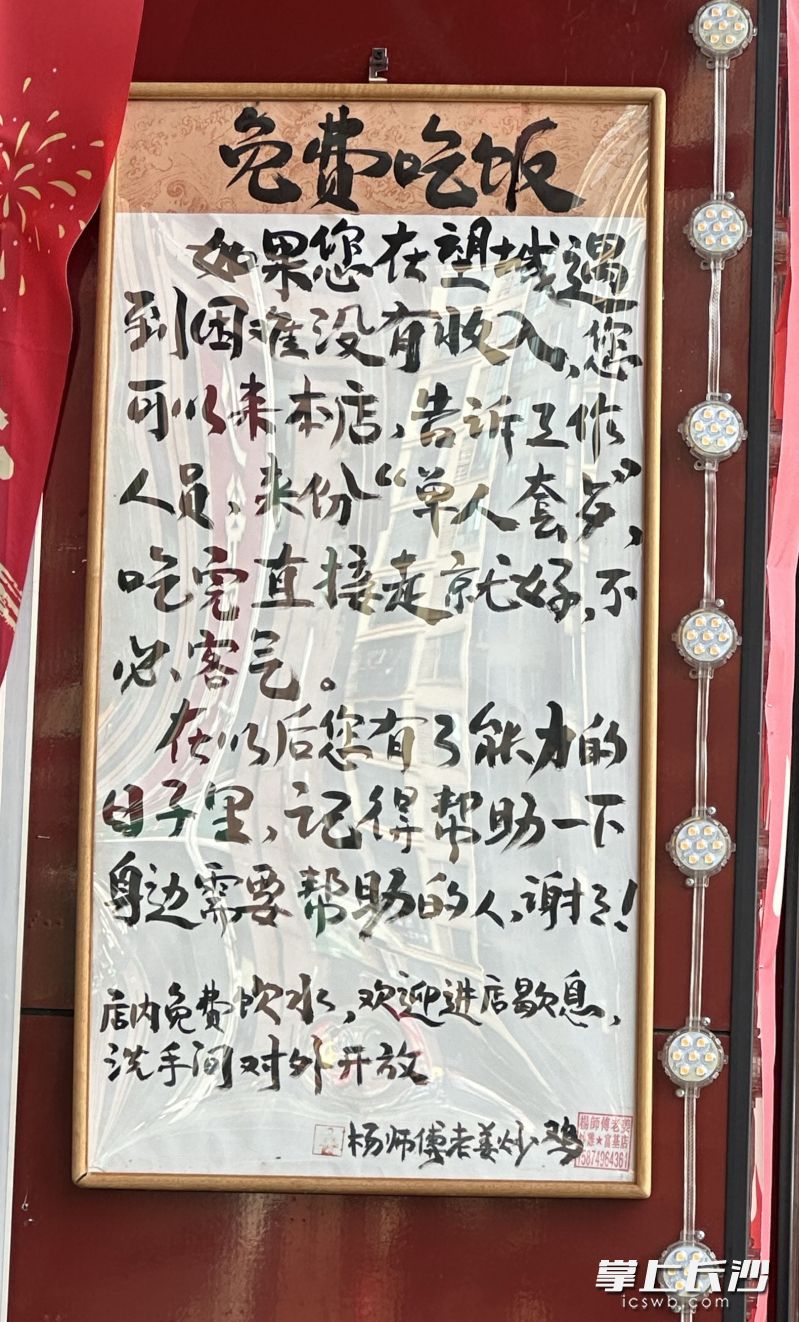 免费吃饭
如果您在望城遇
到困难没有收入,您
可以来本店,告诉工作
人员,来份“单人套岁”,
吃完直接走就好,不
必客气。
在以后您有了能力的
日子里,记得帮助一下
身边需要帮助的人,谢了!
店内免费饮水,欢迎进店歇息,
洗手间对外开放
杨师傅老姜炒鸡
楊師傅老姜
★富基店
15874964361
掌上长沙
icswb.com